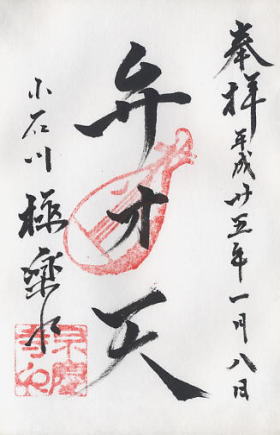 奉拝 平成廿五年一月八日
弁才天
小石川 極楽水
宗慶寺印